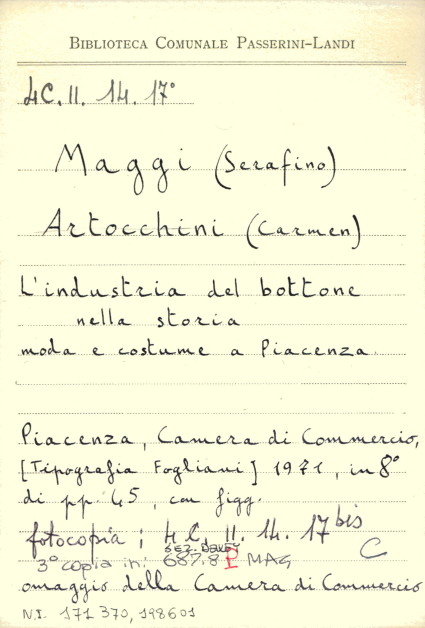 BIBLIOTECA COMUNALE PASSERINI-LANDI
4C. II. 14. 17°
Maggi (Serafino)
Artocchini (Carmen)
L'industria del bottone
nella storia
moda e costume a Piacenza
Piacenza, Camera di Commercio,
[Tipografia Fogliani] 1971, in 8°
di pp. 45, con figg.
fotocopia; 4 C. II. 14. 17 bis
C
3° copia in: 687.8 P MAG
omaggio della Camera di Commercio
N.I. 171 370, 198601